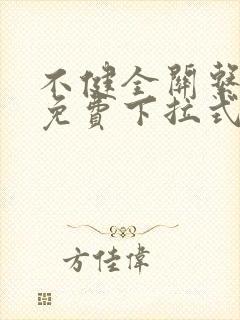 不健全關繫
免費下拉式
方佳偉